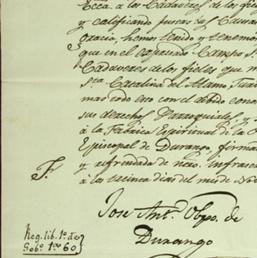 Ecca a los Cadaveres de los fie
y calificando
oracio, hemos tenido y tenemos
que en el expresado Campo S.
Cadaveres de los fieles que m
Sta. Catalina del Alamo,
mas todo esto con el devido cono
sus derechos Parroquiales y
à la Fabrica Espiritual de la
Episcopal de Durango, firma
y refrendada de nro. infrascr
à los veinte dias del mes de
Jose Ant.º Obpo. de
Durango
Reg. lib. 1º de
Gobº. 60